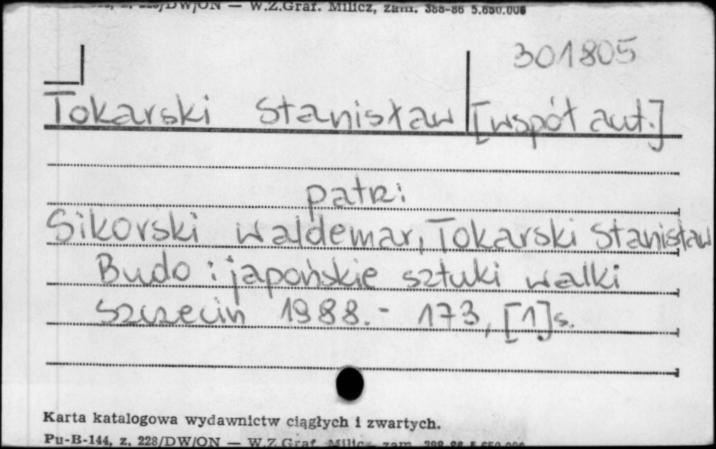 228/DW/ON — W.Z.Graf. Milicz, zam. 388-86 5.650.000
301805
Tokarski Stanisław [współaut.]
patrz:
Sikorski Waldemar, Tokarski Stanisław
Budo : japońskie sztuki walki
Szczecin 1988.- 173, [1]s.
Karta katalogowa wydawnictw ciągłych i zwartych.
Pu-B-144, z. 228/DW/ON — W.Z.Graf. Milicz, zam. 388-86 5.650.000